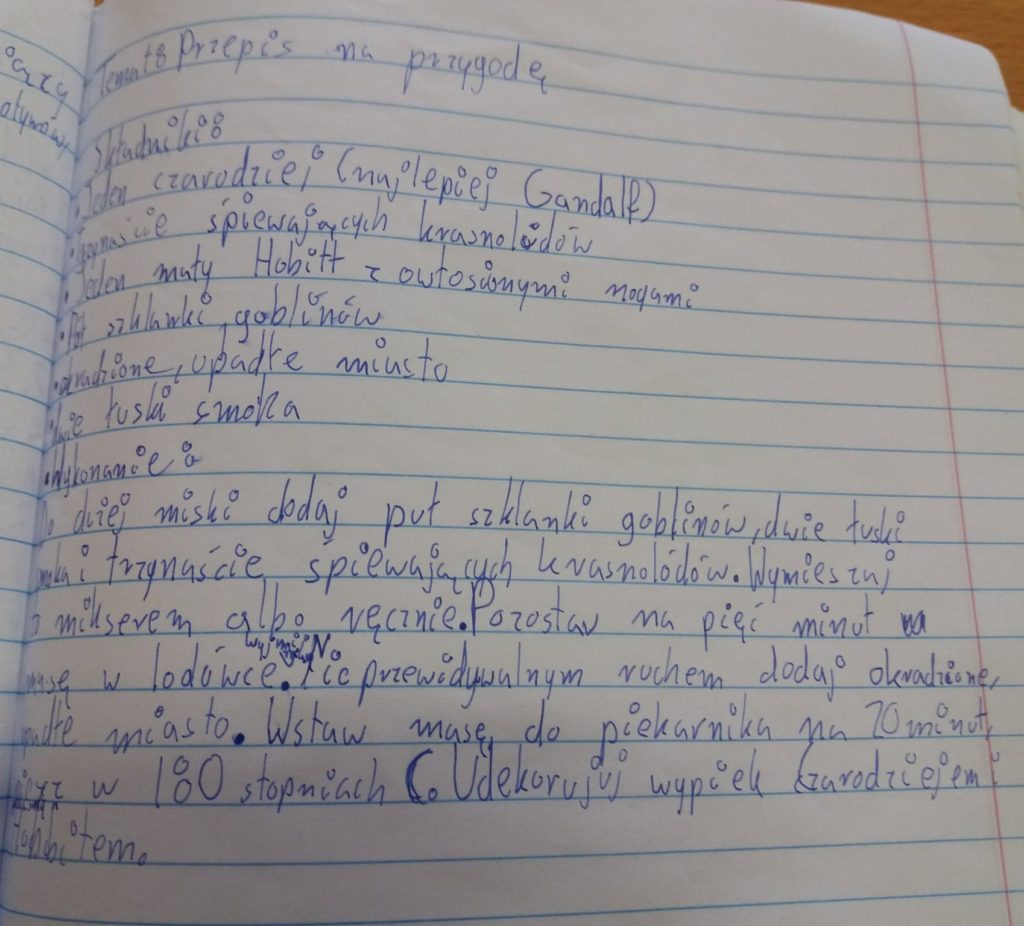 Temat: Przepis na przygodę
Składniki:
• Jeden czarodziej (najlepiej Gandalf)
• Trzynaście śpiewających krasnolódów
• Jeden mały Hobitt z owłosionymi nogami
• Pół szklanki goblinów
• okradzione, upadłe miasto
• dwie łuski smoka
• Wykonanie:
Do dużej miski dodaj puł szklanki goblinów, dwie łuski
smoka i trzynaście śpiewających krasnolódów. Wymieszaj
mikserem albo ręcznie. Pozostaw na pięć minut
masę w lodówce. wyjmij Nieprzewidywalnym ruchem dodaj okradzione,
upadłe miasto. Wstaw masę do piekarnika na 20 minut,
w 180 stopniach C. Udekorujuj wypiek czarodziejem i
hobitem.